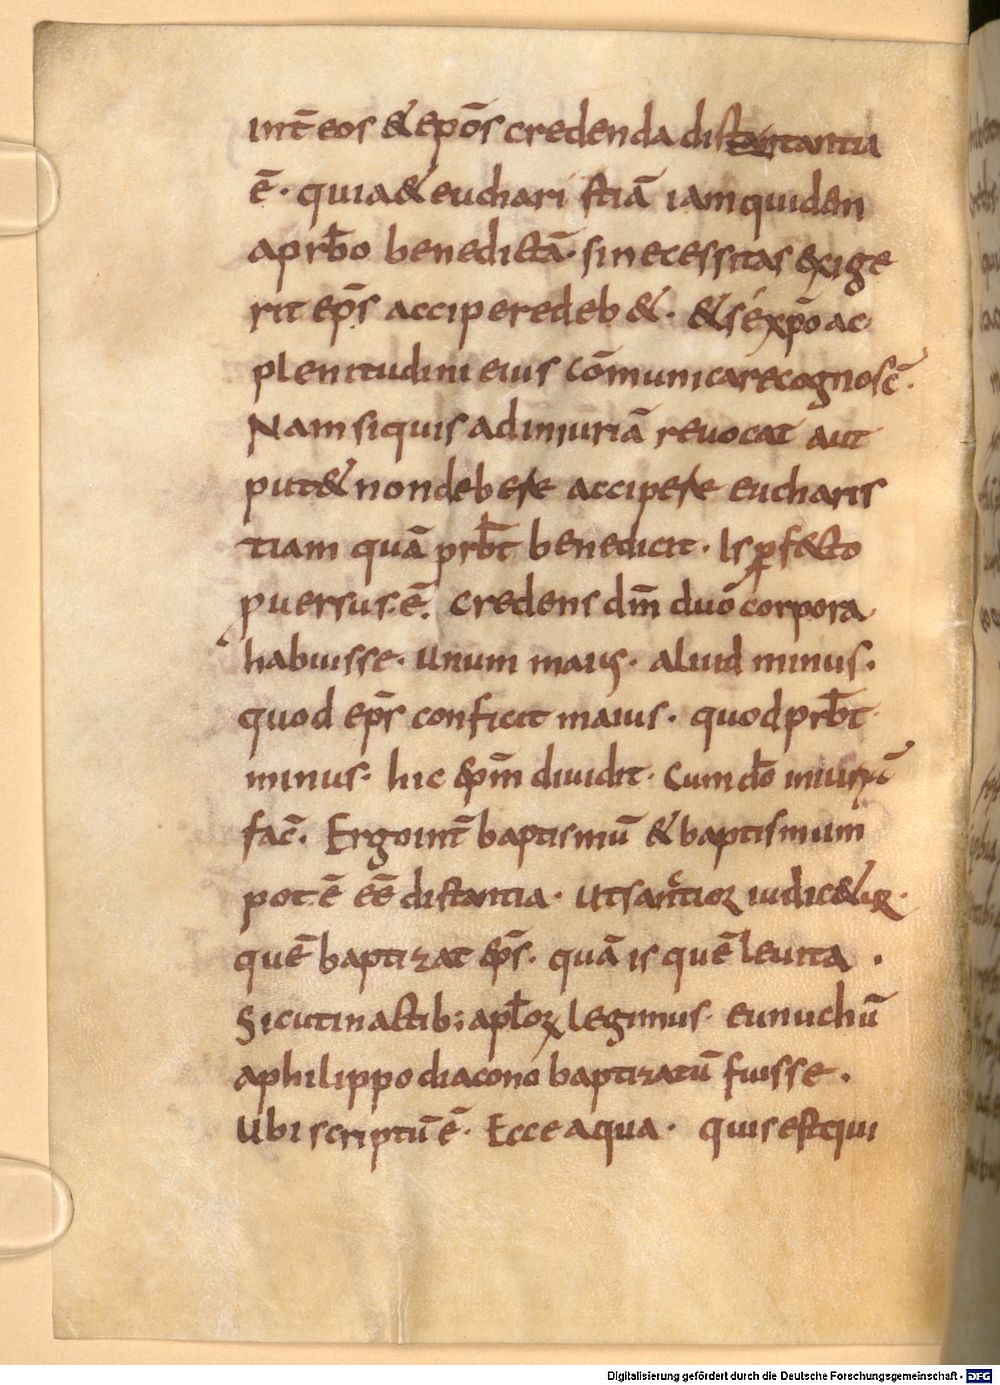 int̄ eos & ep̄os credenda distantia
ē· quia & euchari stiā iam quidan
a prb̄o benedictā· si necessitas exige
rit ep̄s accipere deb&· & sé xp̄o ac
plenitudini eius cōmunicare cognosc̄·
Nam si quis ad iniuriā reuocat aut
put& non debere accipere eucharis
tiam quā prb̄t benedicit· Is ꝓfecto
puersus ē· credens dm̄ duo corpora
habuisse· unum maius· aliud minus·
quod ep̄s conficit maius· quod prb̄t
minus· hic xp̄m diuidit· Cum dō iniuriā
fac̄· Ergo int̄ baptismū & baptismum
potē eē distantia· ut sanctioꝝ iudic&ur·
quē baptizat ep̄s· quā is quē leuita ·
Sicut in actib; apl̄oꝝ legimus· eunuchū
a philippo diacono baptizatū fuisse·
Ubi scriptū ē· Ecce aqua· quis est qui
Digitalisierung gefördert durch die Deutsche Forschungsgemeinschaft - DFG